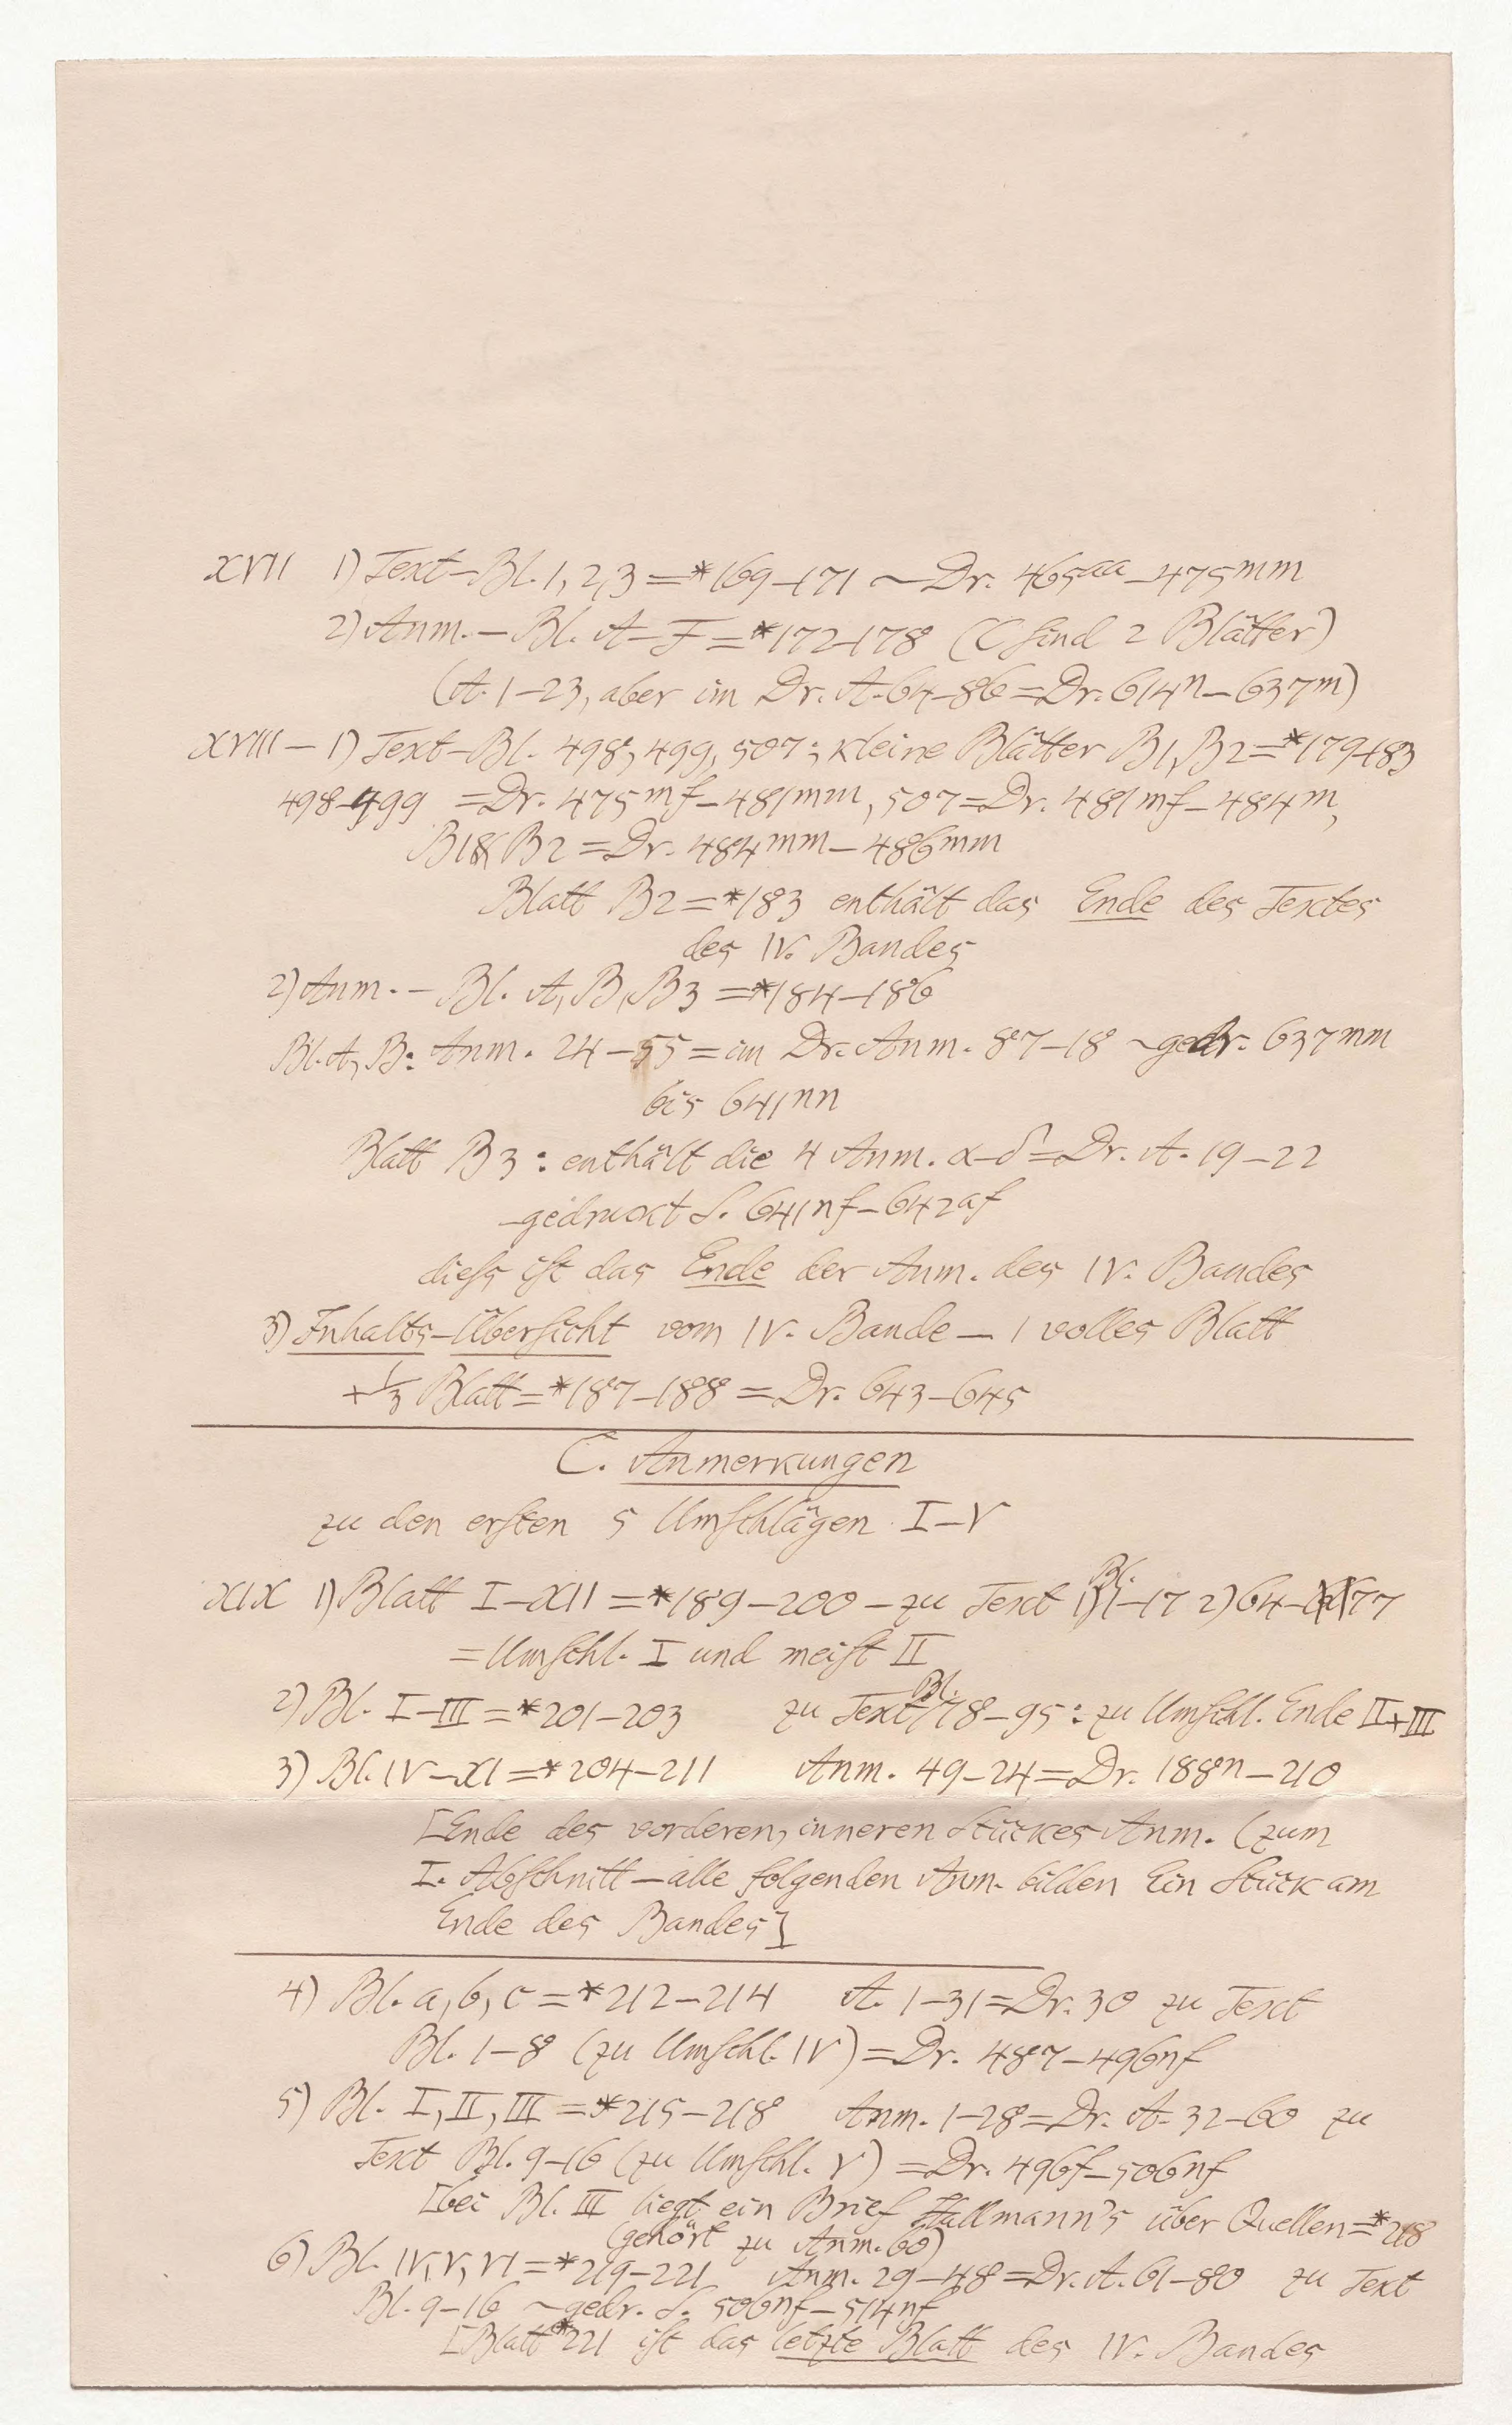 XVII 1) Text-Bl. 1, 2, 3 = *169-171 ~ Dr. 465aa-475mm
2) Anm.-Bl. A-F = *172-178 (C sind 2 Blätter)
(A. 1-23, aber im Dr. A. 64-86 = Dr. 614n-637m)
XVIII - 1) Text-Bl. 498, 499, 507; kleine Blätter B1, B2 = *179-183
498-499 = Dr. 475mf-481mm, 507 = Dr. 481mf-484m,
B1 & B2 = Dr. 484mm-486mm
Blatt B2 = *183 enthält das Ende des Textes
des IV. Bandes
2) Anm.-Bl. A, B, B3 = *184-186
Bl. A, B: Anm. 24-55 = im Dr. Anm. 87-18 ~ gedr. 637mm
bis 641nn
Blatt B3: enthält die 4 Anm. α-δ = Dr. A. 19-22
-gedruckt S. 641nf-642af
diess ist das Ende der Anm. des IV. Bandes
3) Inhalts-Übersicht vom IV. Bande - 1 volles Blatt
+ 1/3 Blatt = *187-188 = Dr. 643-645
C. Anmerkungen
zu den ersten 5 Umschlägen I-V
XIX 1) Blatt I-XII = *189-200 - zu Text 1) Bl. 1-17 2) 64-77
= Umschl. I und meist II
2) Bl. I-III = *201-203 zu Text Bl. 78-95: zu Umschl. Ende II+III
3) Bl. IV-XI = *204-211 Anm. 49-24 = Dr. 188n-210
[Ende des vorderen, inneren Stückes Anm. (zum
I. Abschnitt - alle folgenden Anm. bilden Ein Stück am
Ende des Bandes]
4) Bl. a, b, c = *212-214 A. 1-31 = Dr. 30 zu Text
Bl. 1-8 (zu Umschl. IV) = Dr. 487-496nf
5) Bl. I, II, III = *215-218 Anm. 1-28 = Dr. A. 32-60 zu
Text Bl. 9-16 (zu Umschl. V) = Dr. 496f-506nf
[bei Bl. III liegt ein Brief Hallmann's über Quellen = *218
(gehört zu Anm. 60)
6) Bl. IV, V, VI = *219-221 Anm. 29-48 = Dr. A. 61-80 zu Text
Bl. 9-16 ~ gedr. S. 506nf-514nf
[Blatt *221 ist das letzte Blatt des IV. Bandes